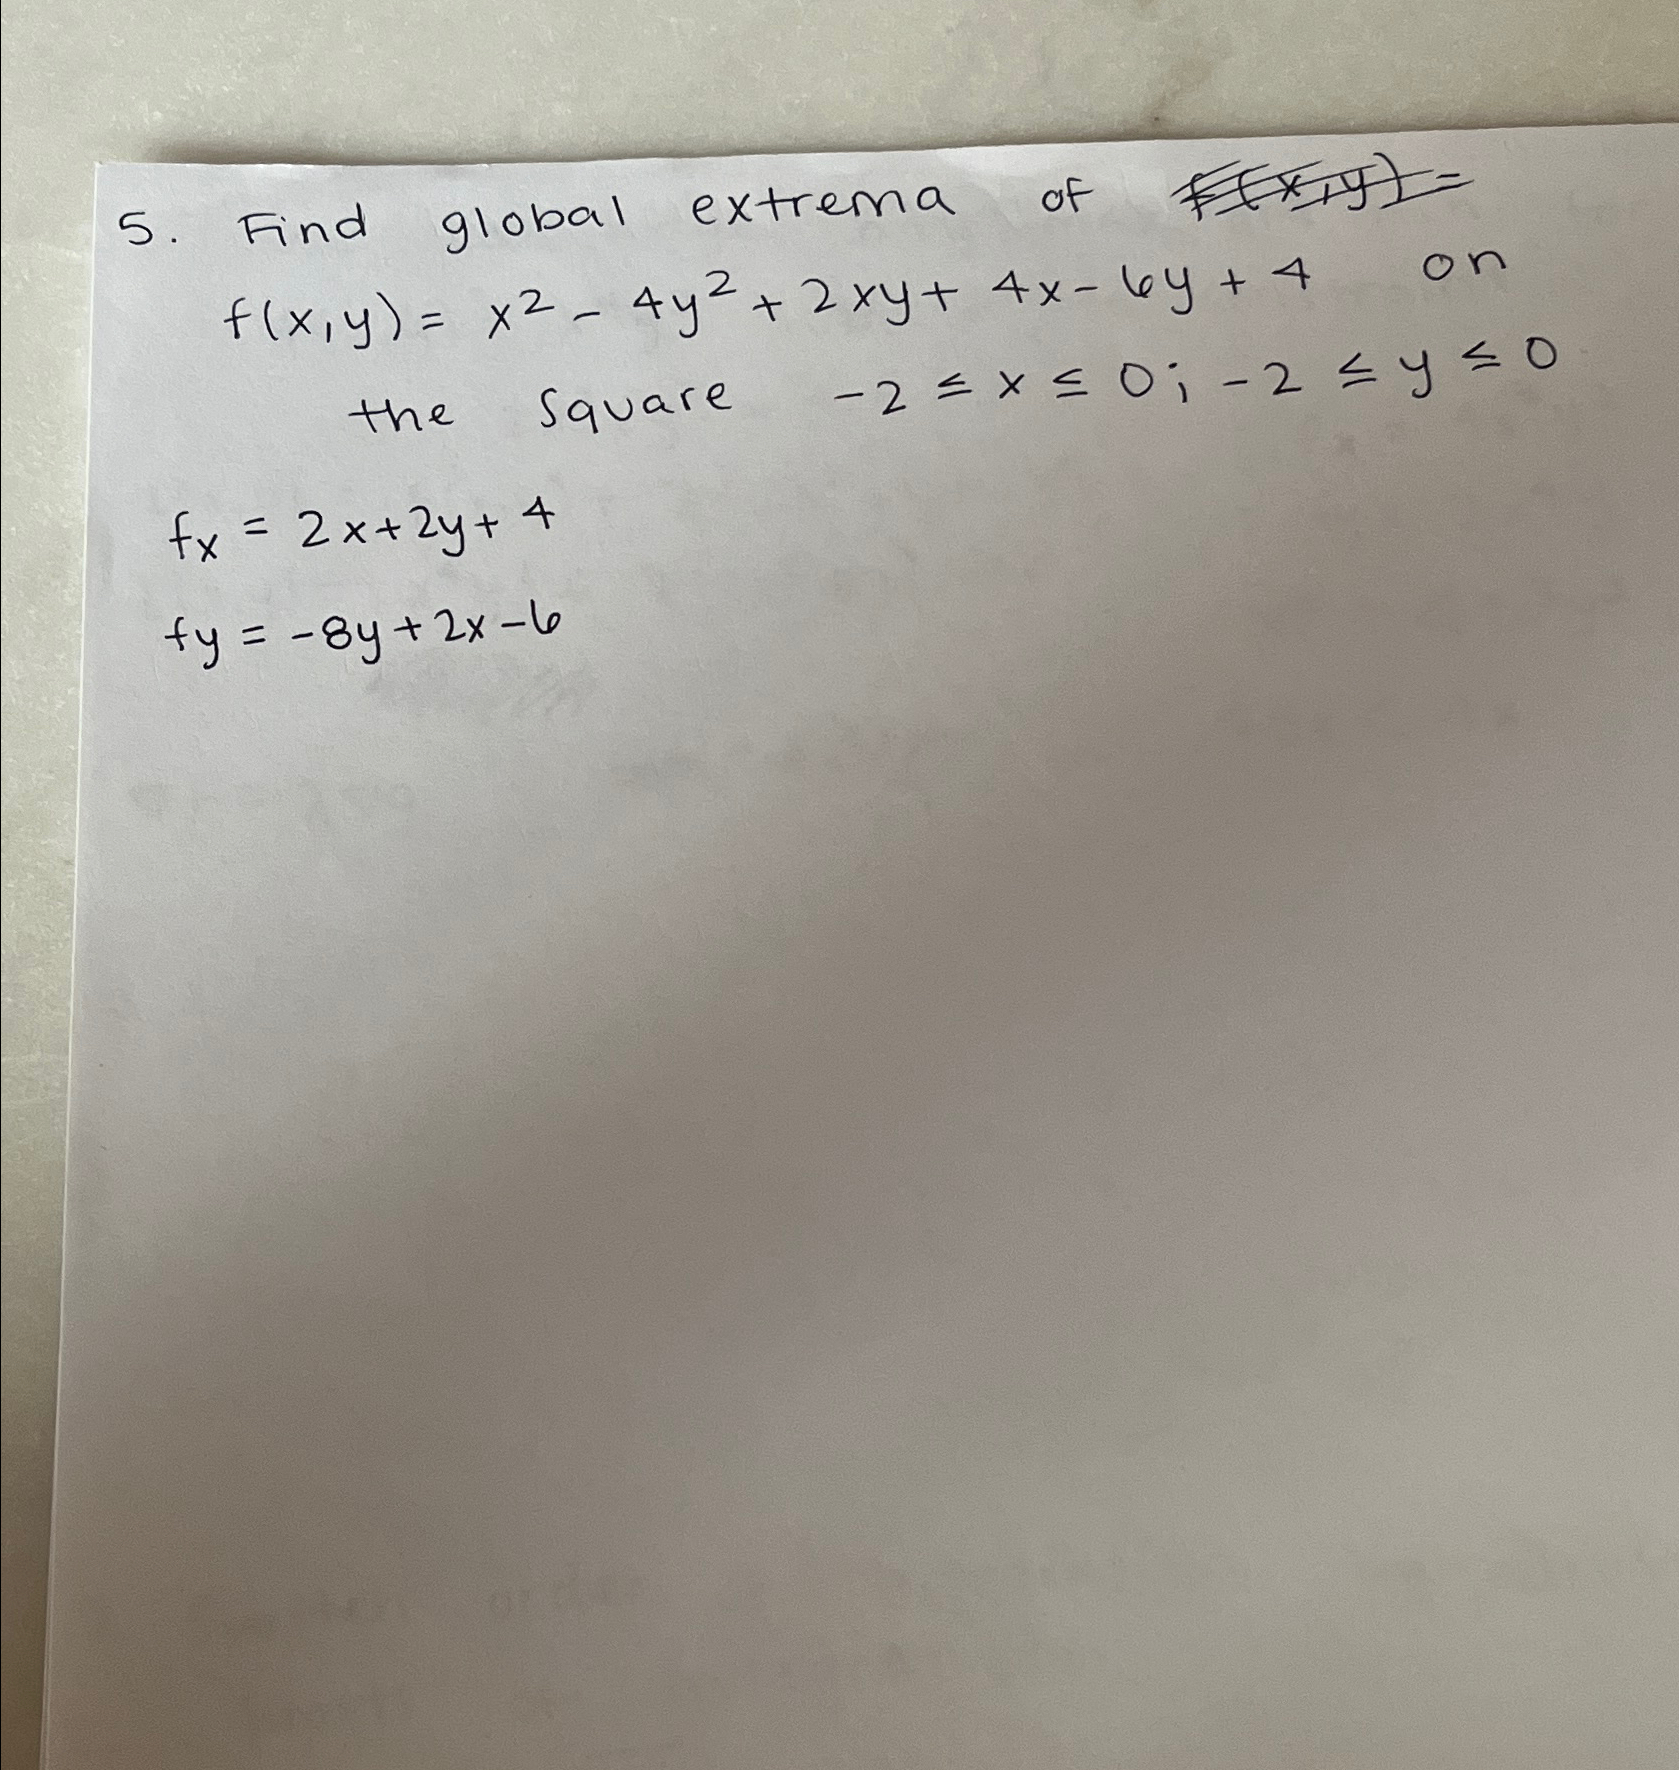 5. Find global extrema of f(x,y)=
f(x,y) = x² - 4y² + 2xy + 4x - 6y + 4 on
the square -2 ≤ x ≤ 0; -2 ≤ y ≤ 0
fx = 2x+2y+ 4
fy = -8y+2x-6